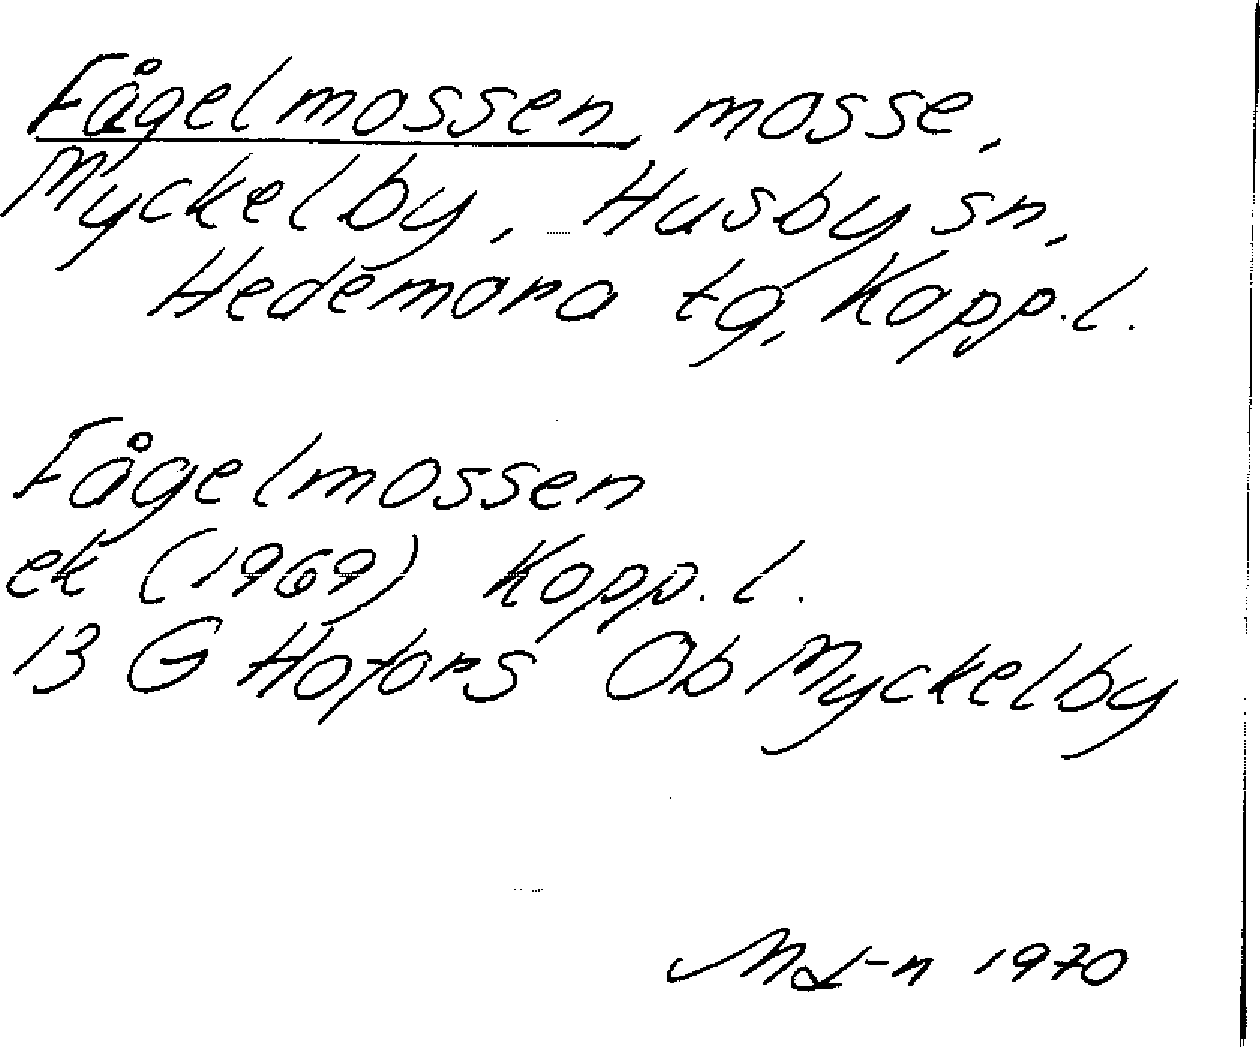 Fågelmossen, mosse,
Myckelby, Husby sn,
Hedemora tg, Kopp. l.
Fågelmossen
ek (1969) Kopp. l.
13 G Hofors Ob Myckelby
1970